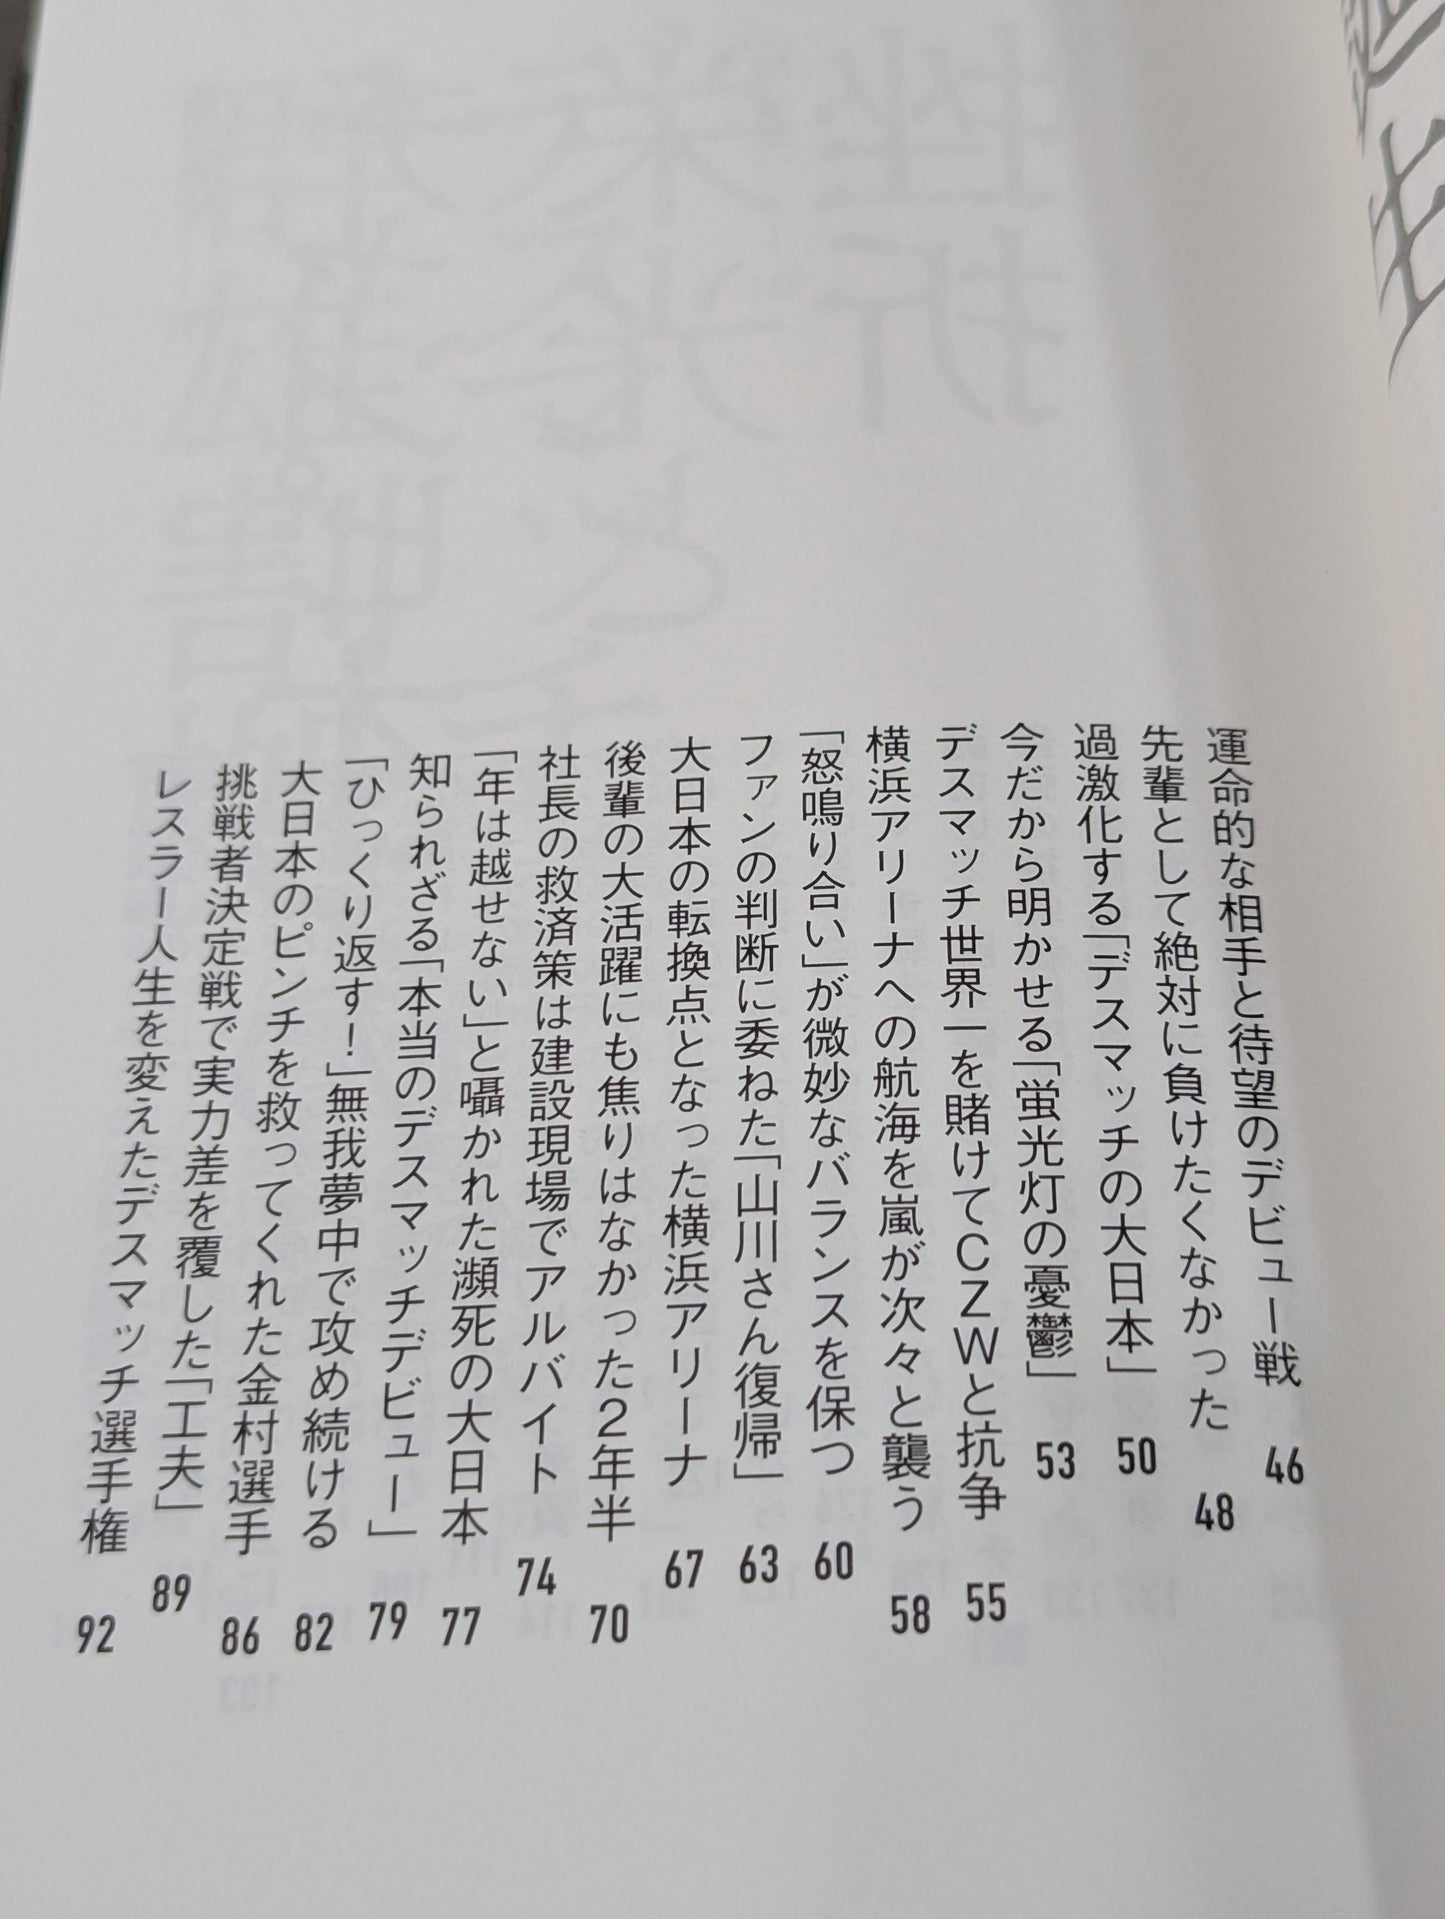 運命的な相手と待望のデビュー戦 46
先輩として絶対に負けたくなかった 48
過激化する「デスマッチの大日本」 50
今だから明かせる「蛍光灯の憂鬱」 53
デスマッチ世界一を賭けてCZWと抗争 55
横浜アリーナへの航海を嵐が次々と襲う 58
「怒鳴り合い」が微妙なバランスを保つ 60
ファンの判断に委ねた「山川さん復帰」 63
大日本の転換点となった横浜アリーナ 67
後輩の大活躍にも焦りはなかった2年半 70
社長の救済策は建設現場でアルバイト 74
「年は越せない」と囁かれた瀕死の大日本 77
知られざる「本当のデスマッチデビュー」 79
「ひっくり返す！」無我夢中で攻め続ける 82
大日本のピンチを救ってくれた金村選手 86
挑戦者決定戦で実力差を覆した「工夫」 89
レスラー人生を変えたデスマッチ選手権 92